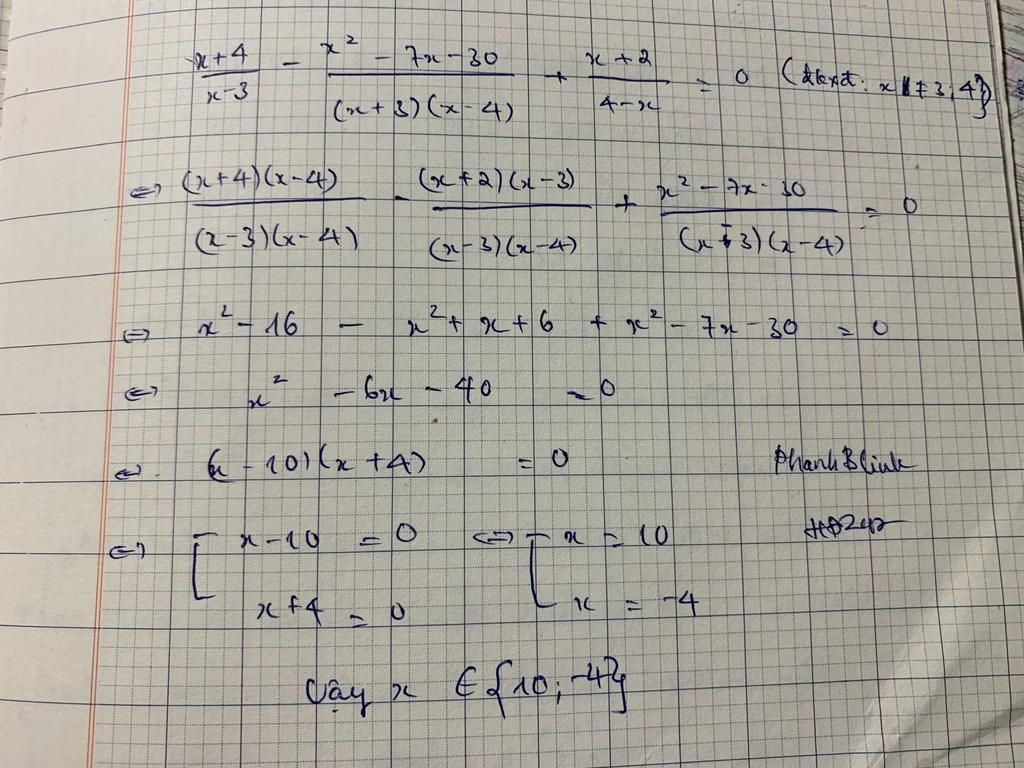 x+4/x-3 - x² - 7x - 30/(x+3)(x-4) + x+2/4-x = 0 (đkxđ: x ≠ 3; 4)
⇔ (x+4)(x-4)/(x-3)(x-4) - (x+2)(x-3)/(x-3)(x-4) + x² - 7x - 30/(x-3)(x-4) = 0
⇔ x² - 16 - x² + x + 6 + x² - 7x - 30 = 0
⇔ x² - 6x - 40 = 0
⇔ (x - 10)(x + 4) = 0 PhanhBlink
⇔ [ x - 10 = 0 ⇔ [ x = 10
x + 4 = 0 x = -4
Vậy x ∈ {10; -4}